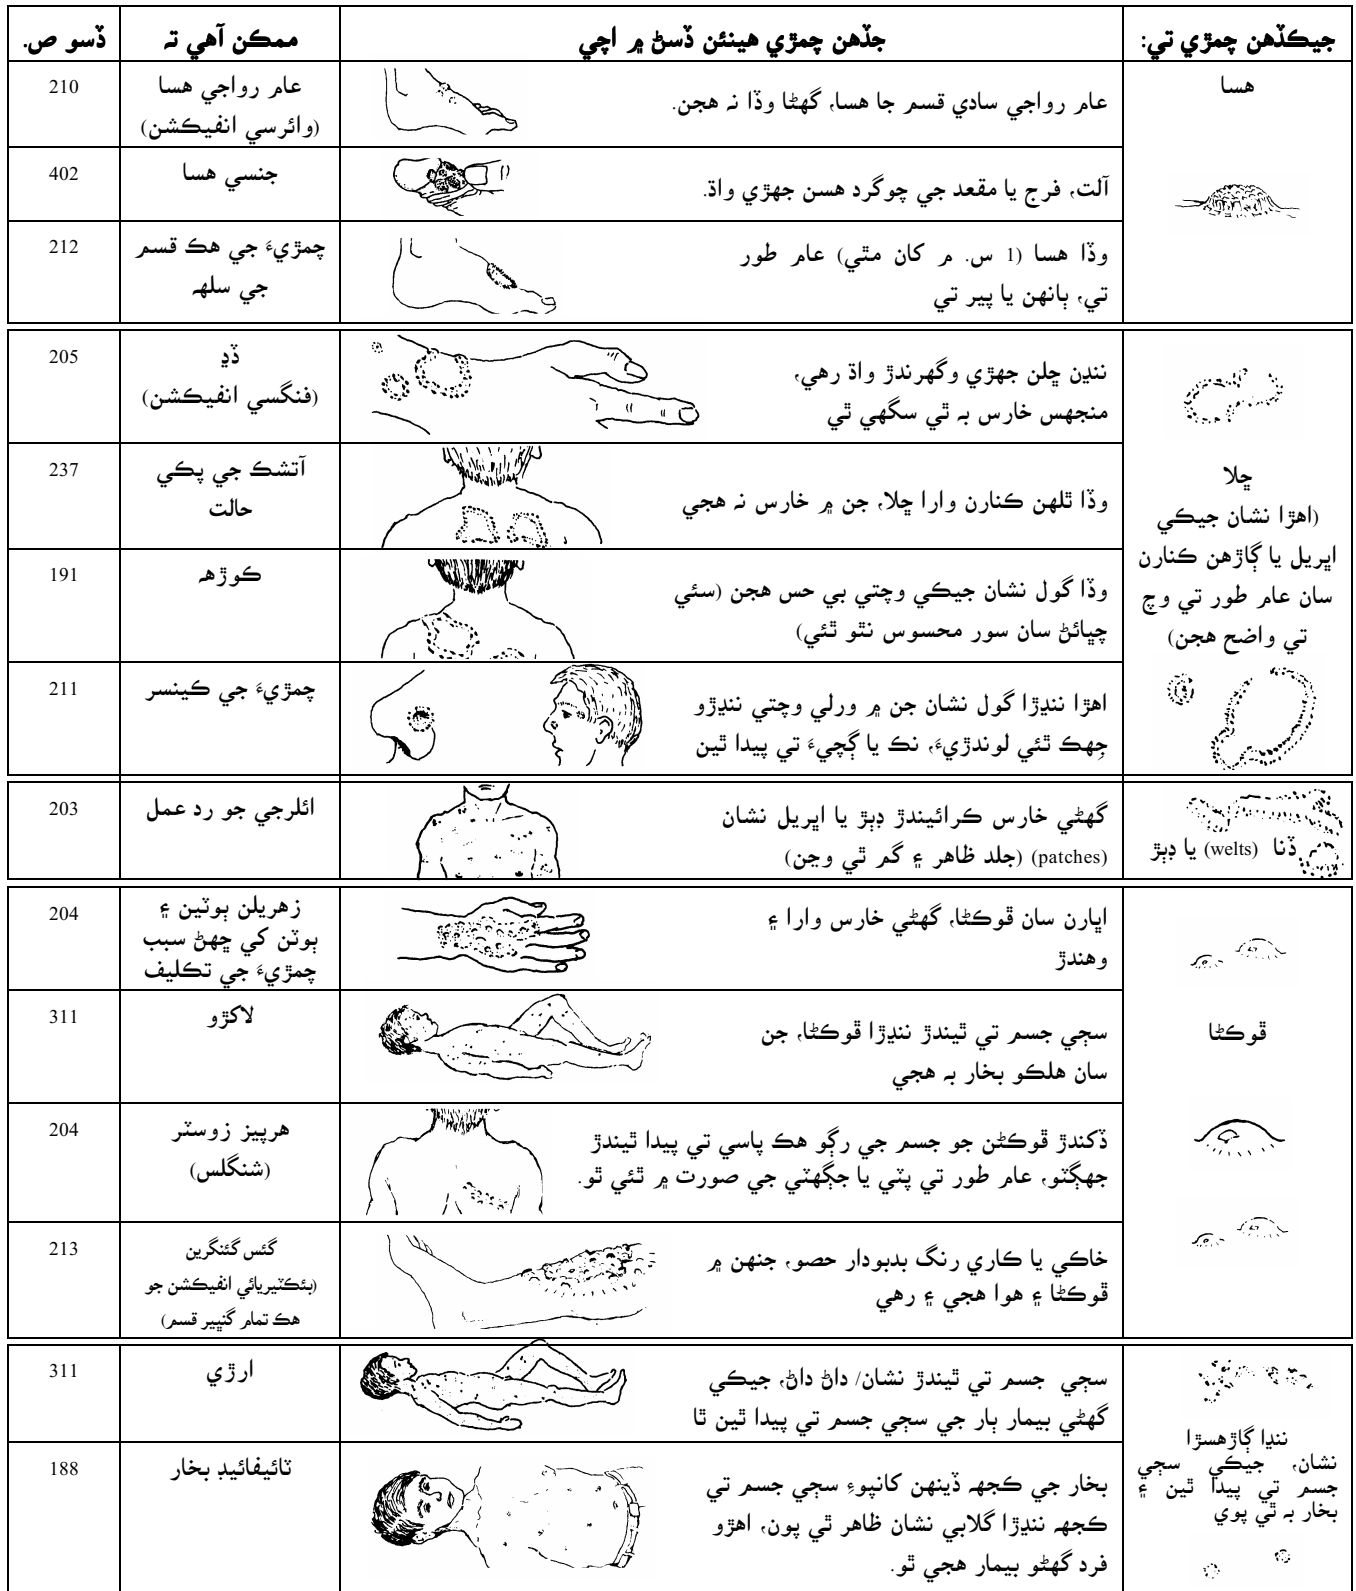 جيڪڏهن چمڙي تي:
جڏهن چمڙي هينئن ڏسڻ ۾ اچي
ممڪن آهي ته
ڏسو ص.
هسا
عام رواجي سادي قسم جا هسا، گهڻا وڏا نہ هجن.
عام رواجي هسا
(وائرسي انفيڪشن)
210
آلت، فرج يا مقعد جي چوگرد هسن جهڙي واڌ.
جنسي هسا
402
وڏا هسا (1 س. م کان مٿي) عام طور
تي، ٻانهن يا پير تي
چمڙيءَ جي هڪ قسم
جي سلهہ
212
ڇلا
(اهڙا نشان جيڪي
اڀريل يا ڳاڙهن ڪنارن
سان عام طور تي وچ
تي واضح هجن)
ننڍن ڇلن جهڙي وگهرندڙ واڌ رهي،
منجهس خارس بہ ٿي سگهي ٿي
ڏڍ
(فنگسي انفيڪشن)
205
وڏا ٿلهن ڪنارن وارا ڇلا، جن ۾ خارس نہ هجي
آتشڪ جي پڪي
حالت
237
وڏا گول نشان جيڪي وچتي بي حس هجن (سئي
چڀائڻ سان سور محسوس نٿو ٿئي)
ڪوڙهہ
191
اهڙا ننڍڙا گول نشان جن ۾ ورلي وچتي ننڍڙو
جِهڪ ٿئي لوندڙيءَ، نڪ يا ڳچيءَ تي پيدا ٿين
چمڙيءَ جي ڪينسر
211
ڏنا (welts) يا ڊٻڙ
گهڻي خارس ڪرائيندڙ ڊٻڙ يا اڀريل نشان
(patches) (جلد ظاهر ۽ گم ٿي وڃن)
ائلرجي جو رد عمل
203
ڦوڪڻا
اڀارن سان ڦوڪڻا، گهڻي خارس وارا ۽
وهندڙ
زهريلن ٻوٽين ۽
ٻوٽن کي ڇهڻ سبب
چمڙيءَ جي تڪليف
204
سڄي جسم تي ٿيندڙ ننڍڙا ڦوڪڻا، جن
سان هلڪو بخار بہ هجي
لاکڙو
311
ڏکندڙ ڦوڪڻن جو جسم جي رڳو هڪ پاسي تي پيدا ٿيندڙ
جهڳٽو، عام طور تي پٽي يا جڳهٽي جي صورت ۾ ٿئي ٿو.
هرپيز زوسٽر
(شنگلس)
204
خاڪي يا ڪاري رنگ بدبودار حصو، جنهن ۾
ڦوڪڻا ۽ هوا هجي ۽ رهي
گئس گئنگرين
(بئڪٽيريائي انفيڪشن جو
هڪ تمام گنڀير قسم)
213
ننڍا ڳاڙهسڙا
نشان، جيڪي سڄي
جسم تي پيدا ٿين ۽
بخار بہ ٿي پوي
سڄي جسم تي ٿيندڙ نشان/ داڻ داڻ، جيڪي
گهڻي بيمار ٻار جي سڄي جسم تي پيدا ٿين ٿا
ارڙي
311
بخار جي ڪجهہ ڏينهن کانپوءِ سڄي جسم تي
ڪجهہ ننڍڙا گلابي نشان ظاهر ٿي پون، اهڙو
فرد گهڻو بيمار هجي ٿو.
ٽائيفائيڊ بخار
188